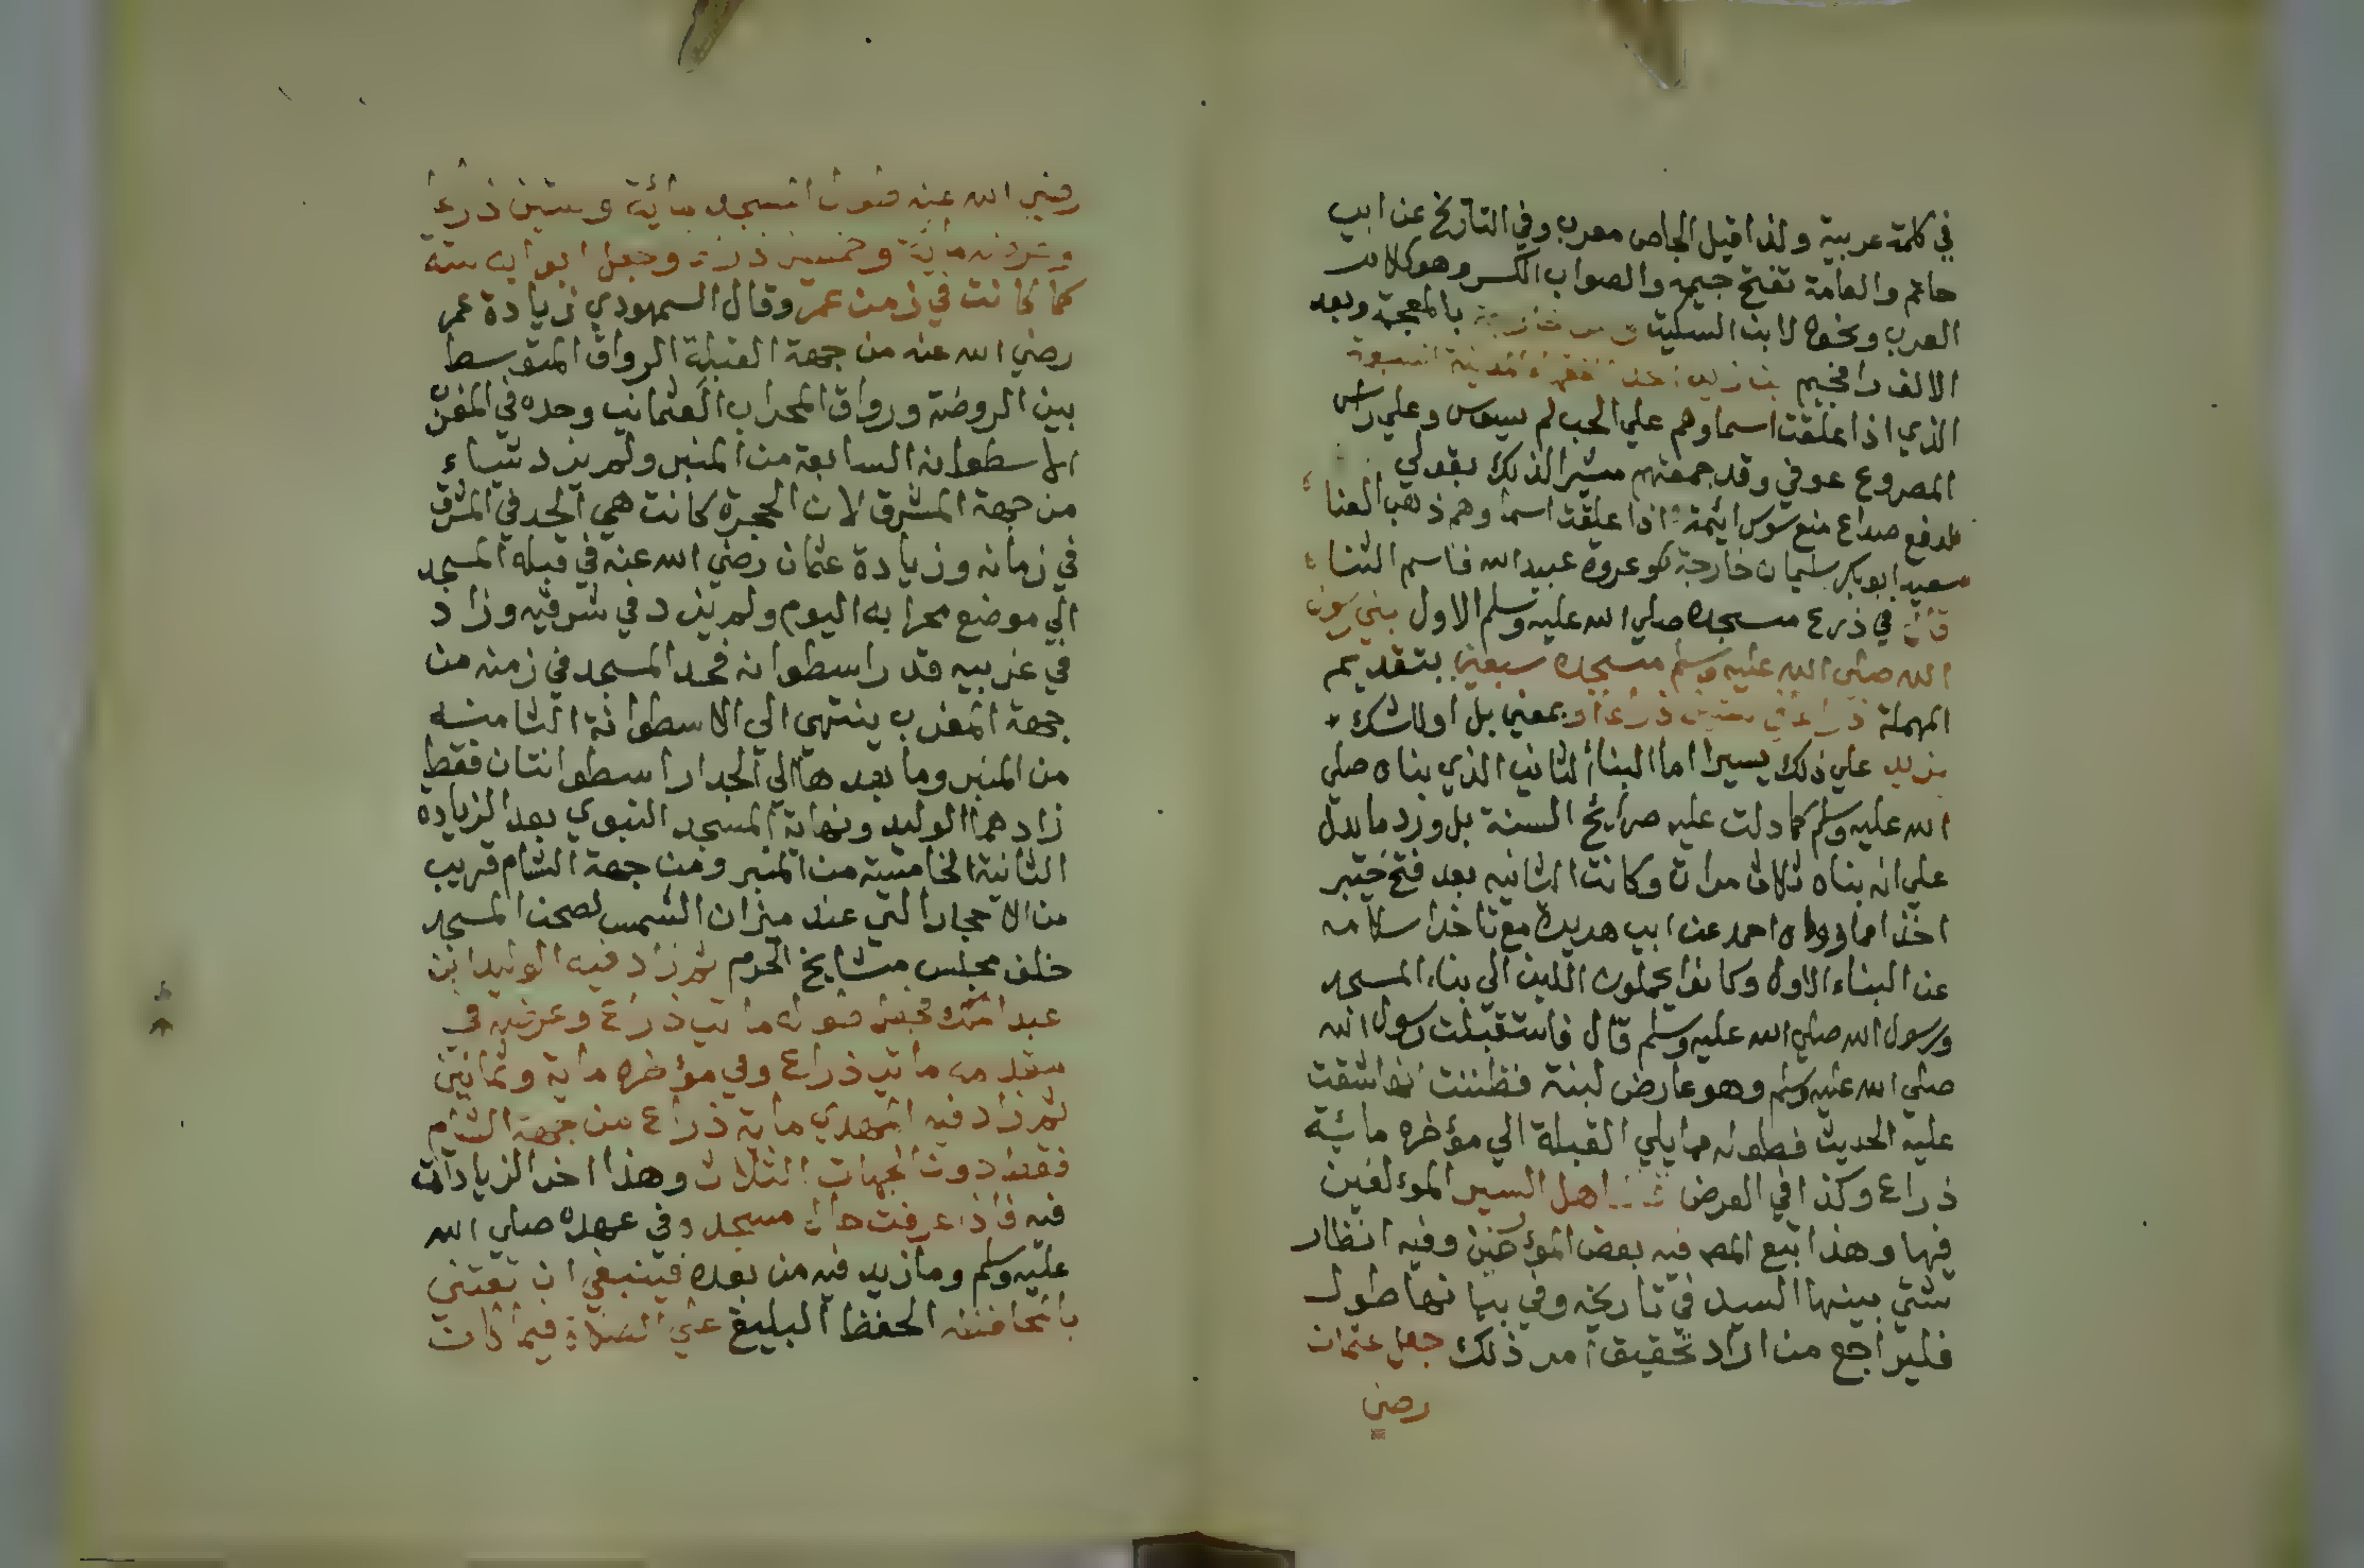 في كلمة عربية ولذا قيل الجاص معرب وفي التاريخ عن ابي
حاتم والعامة تفتح جيمه والصواب الكسر وهو كلام
العرب ونحوه لابن السكيت خارجة بالمعجمة وبعد
الالف را فجيم بن زيد احد فقهاء المدينة السبعة
الذي اذا علقت اسماوهم علي الحب لم يسوس وعلي راس
المصروع عوفي وقد جمعتهم مشيرا لذلك بقولي
لدفع صداع منع سوس ائمة اذا علقت اسماوهم ذهب العناء
سعيد ابو بكر سليمان خارجة كو عروة عبيد الله قاسم الثناء
قال في ذرع مسجده صلي الله عليه وسلم الاول بني رسول
الله صلي الله عليه وسلم مسجده سبعين بتقديم
المهملة ذراعا في ستين ذراعا او بمعني بل او للشك
يزيد علي ذلك يسيرا اما البنا الثاني الذي بناه صلي
الله عليه وسلم كما دلت عليه صرايح السنة بل ورد ما يدل
علي انه بناه ثلاث مرات وكانت الثانيه بعد فتح خيبر
اخذا مما رواه احمد عن ابي هريرة مع تاخر اسلامه
عن البناء الاول وكانوا يحملون اللبن الي بناء المسجد
ورسول الله صلي الله عليه وسلم قال فاستقبلت رسول الله
صلي الله عليه وسلم وهو عارض لبنة فظننت انها شقت
عليه الحديث فطوله مما يلي القبلة الي مؤخره مائية
ذراع وكذا في العرض اهل السير المؤلفين
فيها وهذا تبع المص فيه بعض المؤرخين وفيه انظار
شتي بينها السيد في تاريخه وفي بيانها طول
فليراجع من اراد تحقيق امر ذلك جعل عثمان
رضي
رضي الله عنه طول المسجد مائة وستين ذراعا
وعرضه ماية وخمسين ذراعا وجعل ابوابه ستة
كما كانت في زمن عمر وقال السمهودي زيادة عمر
رضي الله عنه من جهة القبلة الرواق المتوسط
بين الروضة ورواق المحراب العثماني وحده في المغرب
الاسطوانه السابعة من المنبر ولم يزد شياء
من جهة المشرق لان الحجرة كانت هي الحد في المشرق
في زمانه وزيادة عثمان رضي الله عنه في قبله المسجد
الي موضع محرابه اليوم ولم يزد في شرقيه وزاد
في غربيه قدر اسطوانه فحد المسجد في زمنه من
جهة المغرب ينتهي الي الاسطوانة الثامنه
من المنبر وما بعدها الي الجدار اسطوانتان فقط
زادهما الوليد ونهاية المسجد النبوي بعد الزيادة
الثانية الخامسة من المنبر ومن جهة الشام قريب
من الاحجار التي عند ميزان الشمس لصحن المسجد
خلف مجلس مشايخ الحرم ثم زاد فيه الوليد ابن
عبد الملك فجعل طوله مايتي ذراع وعرضه في
مقدمه مايتي ذراع وفي مؤخره ماية وثمانين
ثم زاد فيه المهدي ماية ذراع من جهة الشام
فقط دون الجهات الثلاث وهذا اخر الزيادات
فيه فاذا عرفت حال مسجد وفي عهده صلي الله
عليه وسلم وما زيد فيه من بعده فينبغي ان تعتني
بالمحافظه الحفظ البليغ علي الصلاة فيما كان